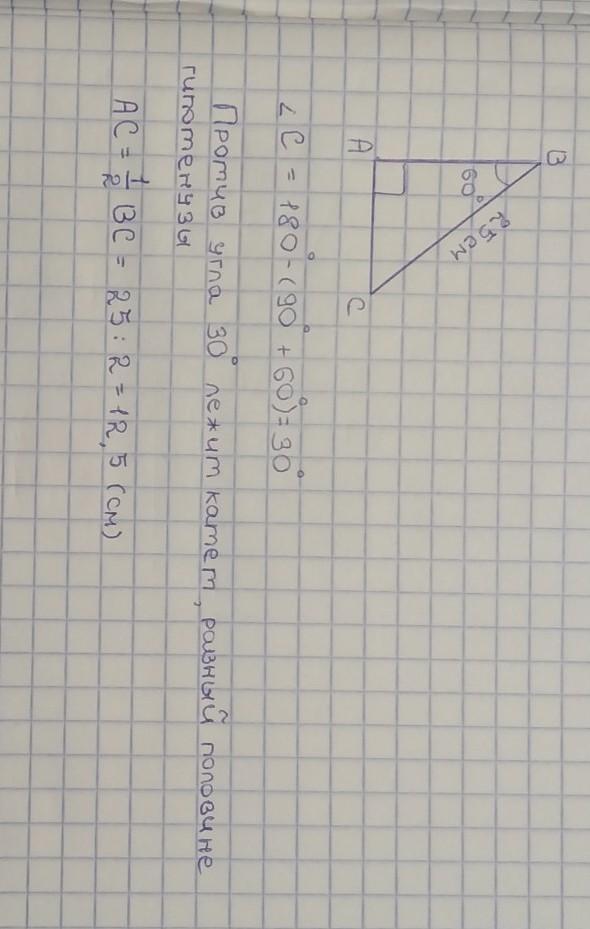 B
60° 25 см
A
C
∠C = 180° - (90° + 60°) = 30°
Против угла 30° лежит катет, равный половине
гипотенузы
AC = 1/2 BC = 25 : 2 = 12,5 (см)